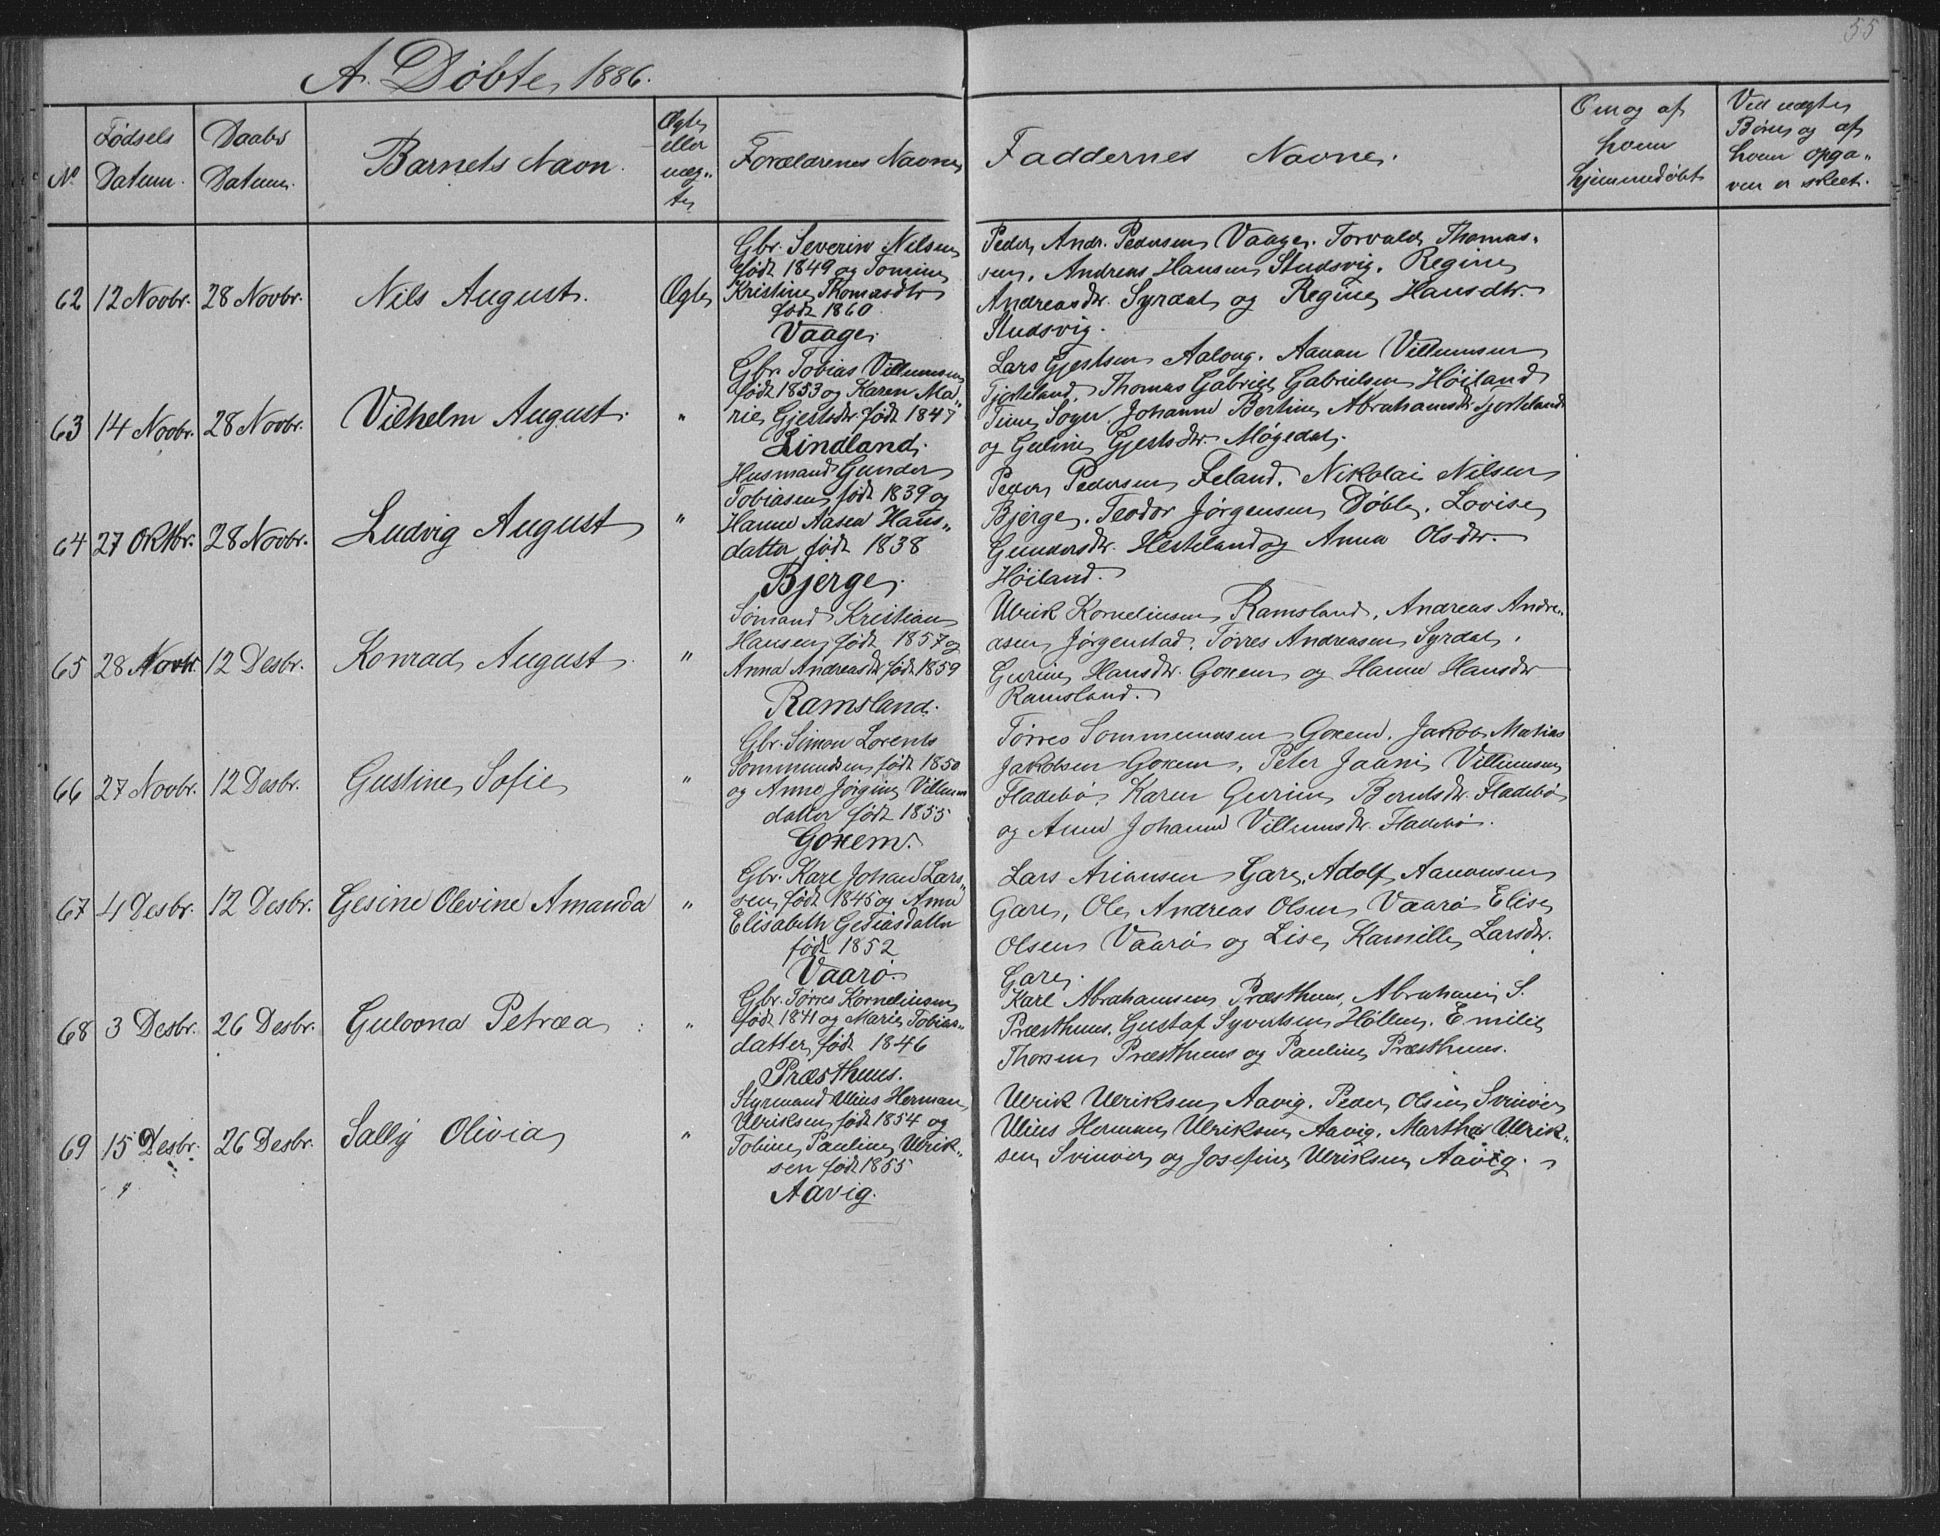 55
A. Døbte, 1886.
No. Fødsels Datum. Daabs Datum. Barnets Navn. Ægte eller uægte Forældrenes Navne Faddernes Navne. Om og af hvem hjemmedøbt Ved uægte Børn og af hvem opgaven er skeet.
62 12 Novbr. 28 Novbr. Nils August. Ægte
Gbr. Severin Nilsen
født 1849 og Tomine
Kristine Thomasdtr
født 1860.
Vaage.
Peder Andr. Pedersen Vaage. Torvald Thomas-
sen, Andreas Hansen Studsvig. Regine
Andreasdtr. Syrdal og Regine Hansdtr.
Studsvig.
63 14 Novbr. 28 Novbr. Vilhelm August. "
Gbr. Tobias Villumsen
født 1853 og Karen Ma-
rie Gjertsdtr født 1847
Lindland.
Lars Gjertsen Aalong. Aanon Villumsen
Tjorteland, Thomas Gabriel Gabrielsen Høiland
Sogn. Johanne Bertine Abrahamsdtr Tjorteland
og Guline Gjertsdtr. Møgedal.
64 27 Oktbr. 28 Novbr. Ludvig August "
Husmand Gunder
Tobiasen født 1839 og
Hanne Aasen Hans-
datter født 1838
Bjerge.
Peder Pedersen Feland. Nikolai Nilsen
Bjerge. Teodor Jørgensen Døble. Lovise
Gundersdtr. Hesteland og Anna Olsdtr.
Høiland.
65 28 Novbr. 12 Desbr. Konrad August. "
Sømand Kristian
Hansen født 1857 og
Anna Andreasdtr født 1859
Ramsland.
Ulrik Korneliusen Ramsland. Andreas Andre-
asen Jørgenstad. Tørres Andreasen Syrdal.
Gurine Hansdtr. Goxem og Hanne Hansdtr
Ramsland.
66 27 Novbr. 12 Desbr. Gustine Sofie "
Gbr. Simon Lorents
Sommundsen født 1850
og Anne Jørgine Villum
datter født 1855
Goxem.
Tørres Sommundsen Goxem. Jakob Matias
Jakobsen Goxem. Peter Villumsen
Fladebø Karen Gurine Berntsdtr. Fladebø
og Anne Johanne Villumsdtr. Fladebø.
67 4 Desbr. 12 Desbr. Gesine Olevine Amanda "
Gbr. Karl Johan Lars-
sen født 1845 og Anne
Elisabeth Gesiasdatter
født 1852
Vaarø.
Lars Ariansen Gare. Adolf Aanonsen
Gare, Ole Andreas Olsen Vaarø Elise
Olsen Vaarø og Lise Kamille Larsdtr.
Gare.
68 3 Desbr. 26 Desbr. Gulovna Petræa "
Gbr. Tørres Korneliusen
født 1841 og Marie Tobias-
datter født 1846
Præsthuus.
Karl Abrahamsen Præsthuus, Abraham S.
Præsthuus. Gustaf Syvertsen Høllen. Emilie
Thorsen Præsthuus og Pauline Præsthuus.
69 15 Desbr. 26 Desbr. Sally Olivia "
Styrmand Ulius Herman
Ulriksen født 1854 og
Tobine Pauline Ulrik-
sen født 1855
Aavig.
Ulrik Ulriksen Aavig. Peder Olsen Svinør
Ulius Herman Ulriksen Aavig. Martha Ulrik-
sen Svinør og Josefine Ulriksen Aavig.